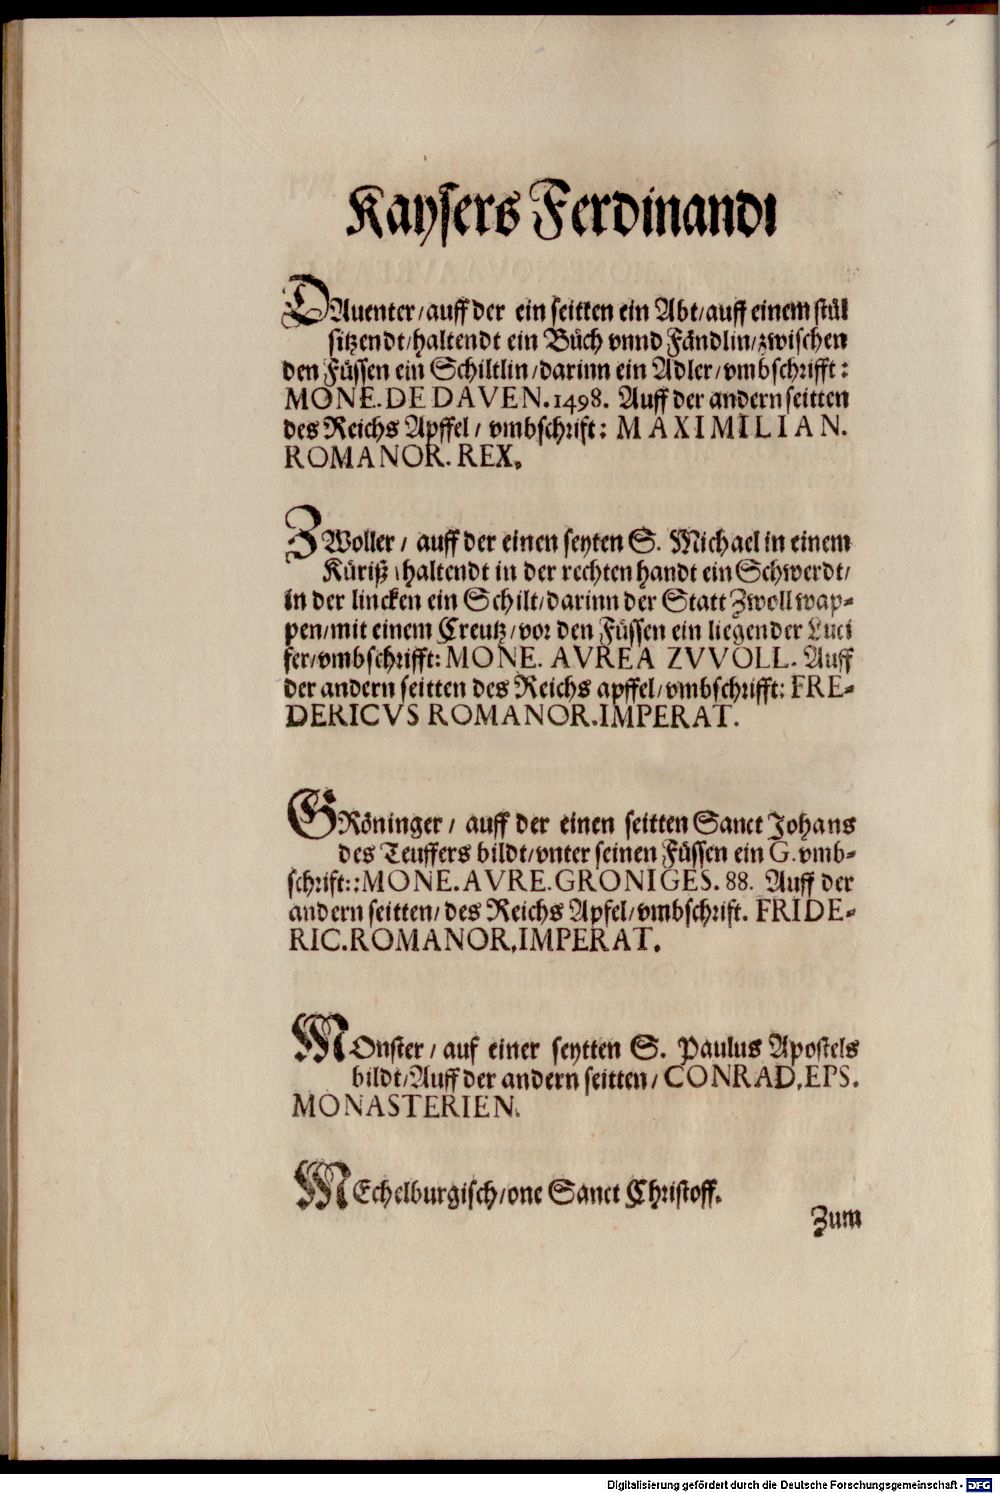 Kaysers Ferdinandi
DAuenter/auff der ein seitten ein Abt/auff einem stůl
sitzendt/haltendt ein Bůch vnnd Fändlin/zwischen
den Füssen ein Schiltlin/darinn ein Adler/vmbschrifft:
MONE.DE DAVEN.1498. Auff der andern seitten
des Reichs Apffel/ vmbschrift: MAXIMILIAN.
ROMANOR. REX.
ZWoller/ auff der einen seyten S. Michael in einem
Küriß/haltendt in der rechten handt ein Schwerdt/
in der lincken ein Schilt/darinn der Statt Zwoll wap-
pen/mit einem Creutz/vor den Füssen ein liegender Luci
fer/vmbschrifft: MONE. AVREA ZVVOLL. Auff
der andern seitten des Reichs apffel/vmbschrifft: FRE-
DERICVS ROMANOR.IMPERAT.
GRöninger/ auff der einen seitten Sanct Johans
des Teuffers bildt/vnter seinen Füssen ein G. vmb-
schrift::MONE.AVRE.GRONIGES. 88. Auff der
andern seitten/des Reichs Apfel/vmbschrift. FRIDE-
RIC.ROMANOR,IMPERAT.
MOnster/ auf einer seytten S. Paulus Apostels
bildt/Auff der andern seitten/CONRAD,EPS.
MONASTERIEN.
MEchelburgisch/one Sanct Christoff.
Zum
Digitalisierung gefördert durch die Deutsche Forschungsgemeinschaft - DFG